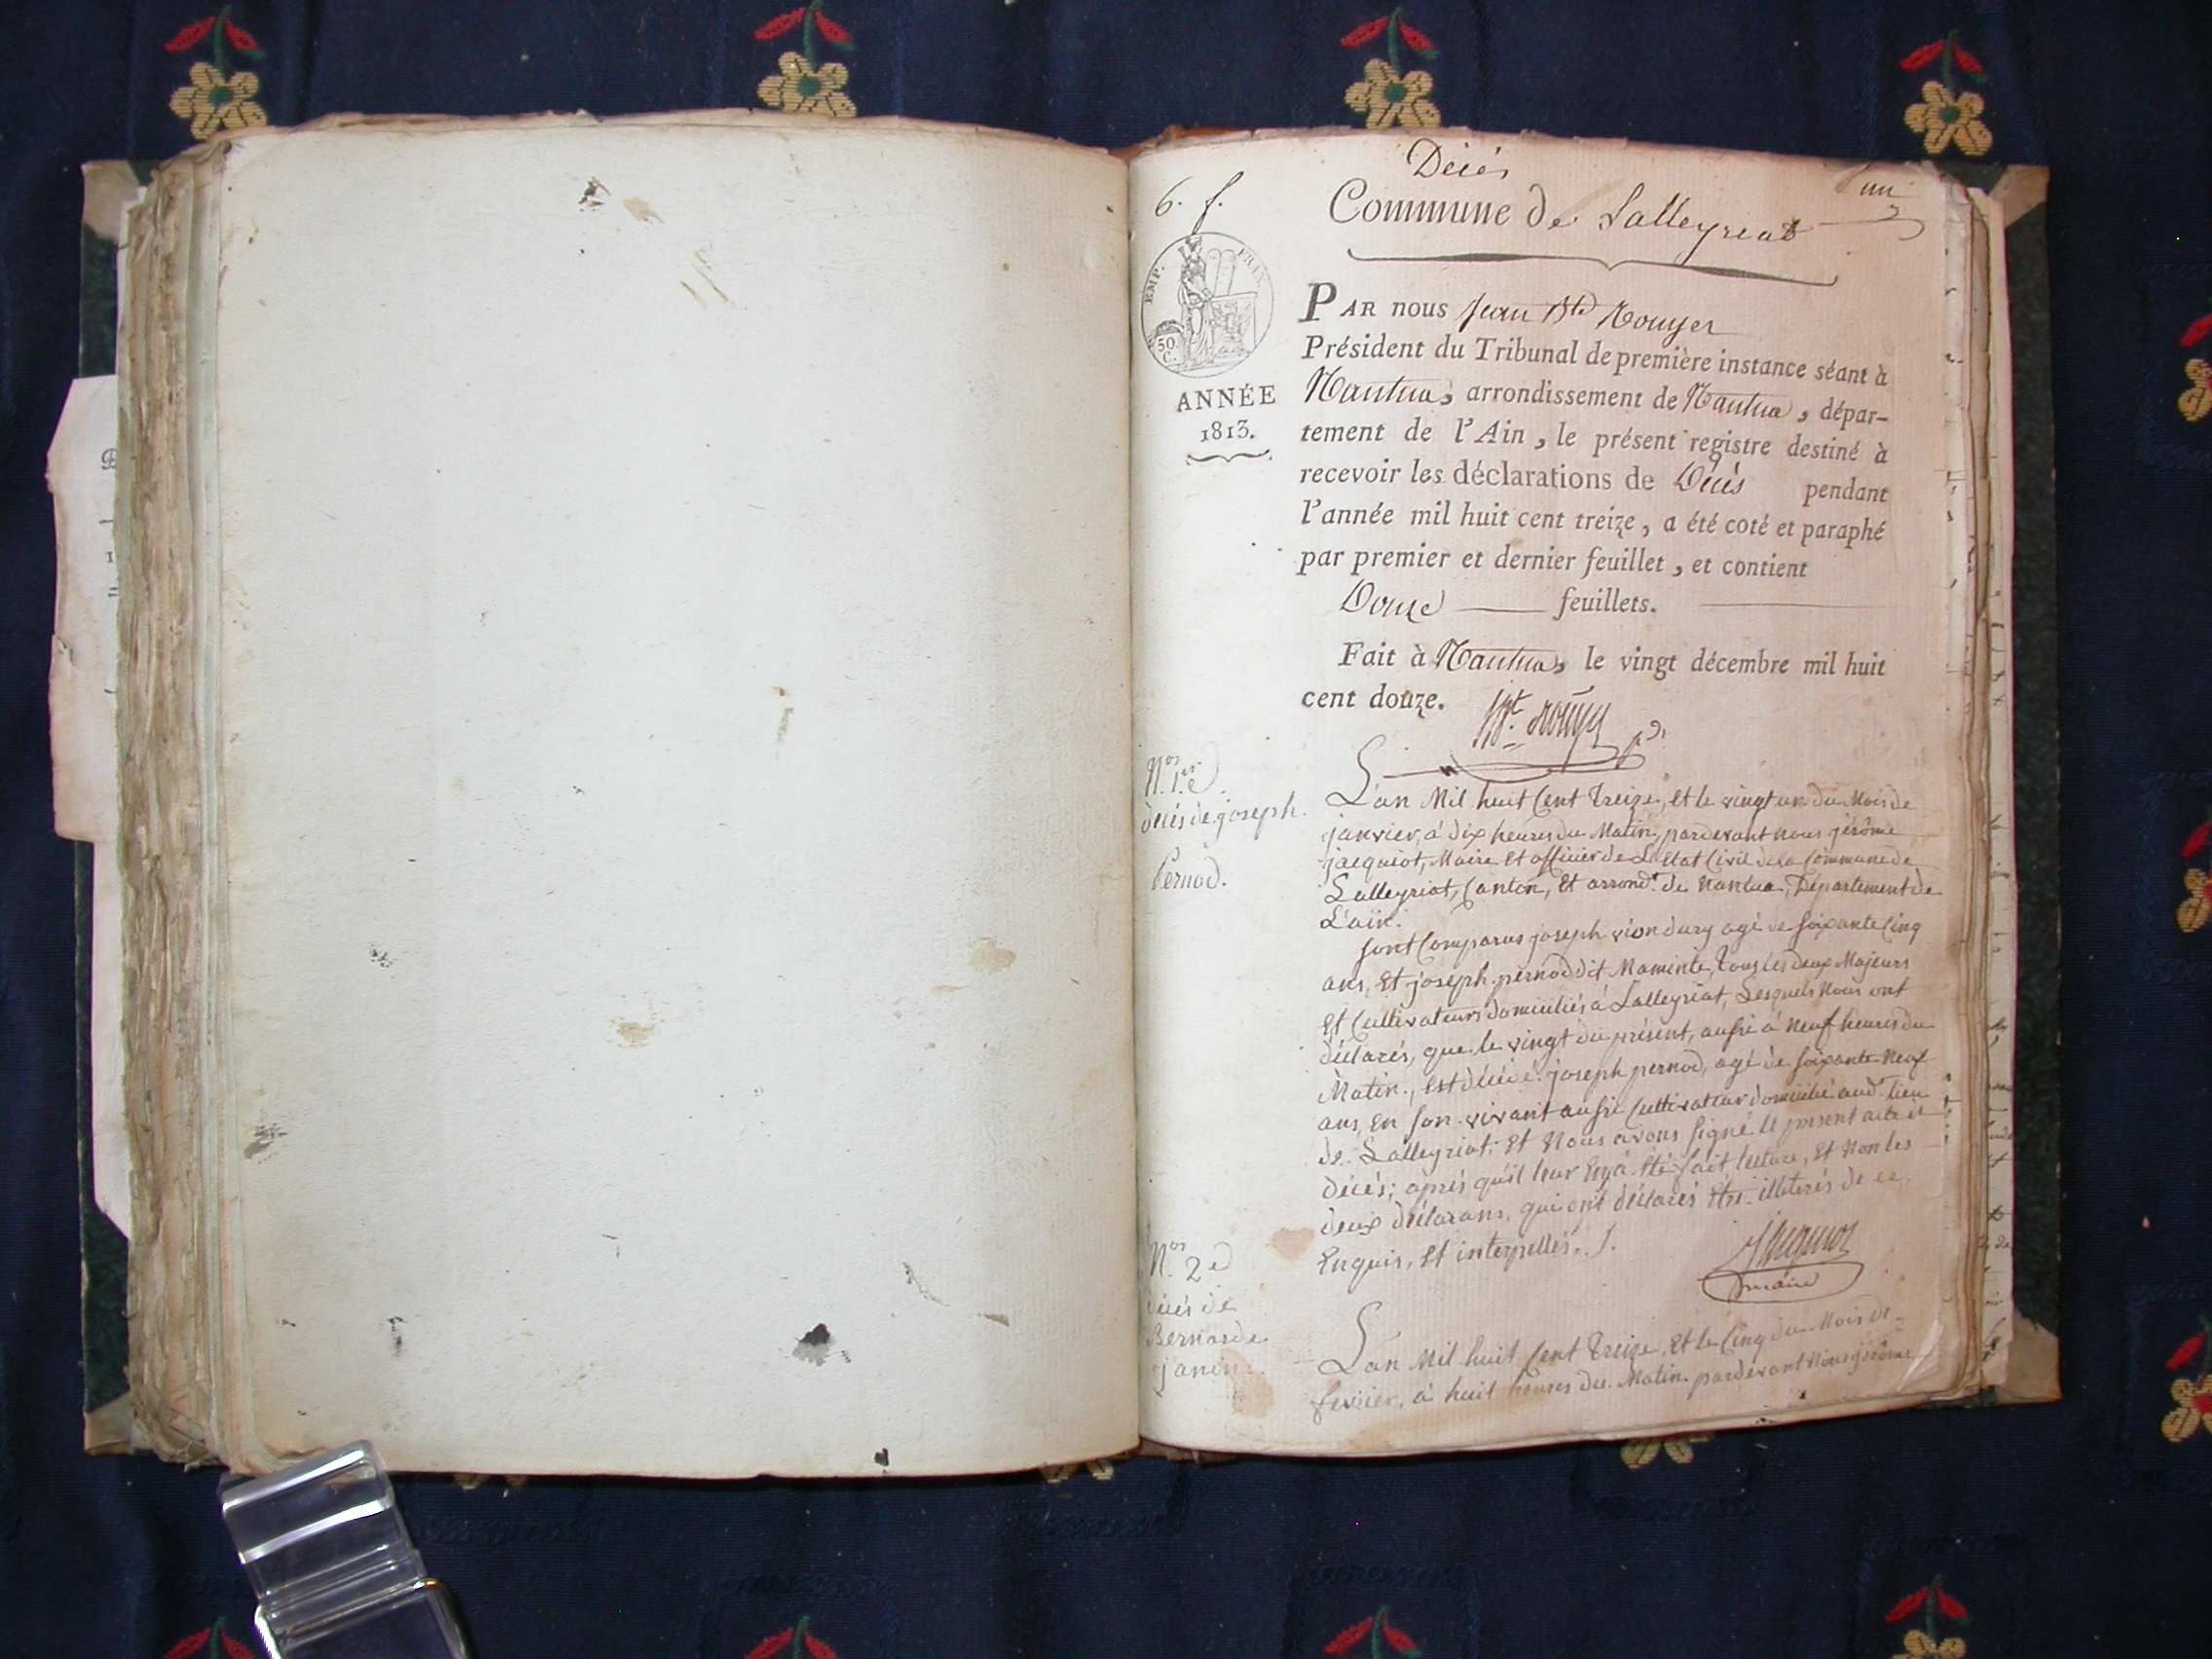 Décès
un
6. f.
Commune de Lalleyriat
EMP. FRAN.
50.
C.
ANNÉE
1813.
PAR nous Jean Bte Rouyer
Président du Tribunal de première instance séant à
Nantua, arrondissement de Nantua, dépar-
tement de l'Ain, le présent registre destiné à
recevoir les déclarations de Décès pendant
l'année mil huit cent treize, a été coté et paraphé
par premier et dernier feuillet, et contient
Douze feuillets.
Fait à Nantua, le vingt décembre mil huit
cent douze.
Bt. Rouyer pdt
Nos 1er
décès de joseph
Pernod.
L'an Mil huit Cent Treize, Et le vingt un du Mois de
janvier, à dix heures du Matin, pardevant nous jérôme
jacquiot, Maire Et officier de L'Etat Civil de la Commune de
Lalleyriat, Canton, Et arrondt. de Nantua, Département de
L'ain.
sont Comparus joseph viondury agé de soixante Cinq
ans, Et joseph pernod dit Maminte, tous les deux Majeurs
Et Cultivateurs domiciliés à Lalleyriat, Lesquels Nous ont
déclarés, que le vingt du présent, aussi à Neuf heures du
Matin, est décédé joseph pernod, agé de soixante Neuf
ans, En son vivant aussi Cultivateur domicilié aud. lieu
de Lalleyriat; Et Nous avons signé le present acte de
décès; après qu'il leur En a été fait lecture, Et Non les
deux déclarans, qui ont déclarés Etre illiterés de ce
Enquis, Et interpellés. /.
Jacquiot
maire
Nos 2e
décès de
Bernarde
janin
L'an Mil huit Cent Treize, Et le Cinq du Mois de
fevrier, à huit heures du Matin pardevant Nous jérôme